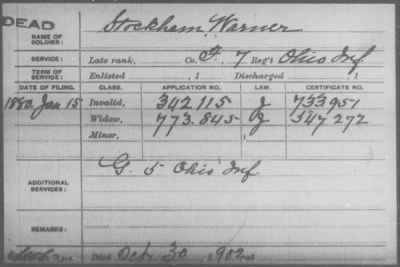 DEAD
NAME OF SOLDIER: Stockham, Warner
SERVICE: Late rank, Co. F, 7 Reg't Ohio Inf
TERM OF SERVICE: Enlisted , 1 Discharged , 1
DATE OF FILING. CLASS. APPLICATION NO. LAW. CERTIFICATE NO.
1880, Jan 15 Invalid, 342115 733951
Widow, 773.845 547272
Minor,
ADDITIONAL SERVICES: G. 5 Ohio Inf
REMARKS:
Died Oct. 30, 1902, at